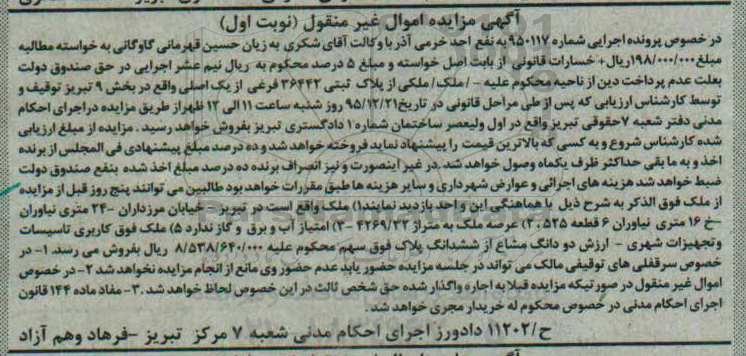 آگهی مزایده اموال غیر منقول (نوبت اول)
در خصوص پرونده اجرایی شماره ۹۵۰۱۱۷ به نفع احد خرمی آذر با وکالت آقای شکری به زیان حسین قهرمانی گاوگانی به خواسته مطالبه
مبلغ ۱۹۸/۰۰۰/۰۰۰ ریال + خسارات قانونی از بابت اصل خواسته و مبلغ ۵ درصد محکوم به ریال نیم عشر اجرایی در حق صندوق دولت
بعلت عدم پرداخت دین از ناحیه محکوم علیه - / ملک/ ملکی از پلاک ثبتی ۳۶۴۴۲ فرعی از یک اصلی واقع در بخش ۹ تبریز توقیف و
توسط کارشناس ارزیابی که پس از طی مراحل قانونی در تاریخ ۹۵/۱۲/۲۱ روز شنبه ساعت ۱۱ الی ۱۲ ظهر از طریق مزایده در اجرای احکام
مدنی دفتر شعبه ۷ حقوقی تبریز واقع در اول ولیعصر ساختمان شماره ۱ دادگستری تبریز بفروش خواهد رسید . مزایده از مبلغ ارزیابی
شده کارشناس شروع و به کسی که بالاترین قیمت را پیشنهاد نماید فروخته خواهد شد و ده درصد مبلغ پیشنهادی فی المجلس از برنده
اخذ و به ما بقی حداکثر ظرف یکماه وصول خواهد شد .در غیر اینصورت و نیز انصراف برنده ده درصد مبلغ اخذ شده بنفع صندوق دولت
ضبط خواهد شد هزینه های اجرائی و عوارض شهرداری و سایر هزینه ها طبق مقررات خواهد بود طالبین می توانند پنج روز قبل از مزایده
از ملک فوق الذکر به شرح ذیل با هماهنگی این واحد بازدید نمایند۱) ملک واقع است در تبریز - خیابان مرزداران -۲۴ متری نیاوران
-خ ۱۶ متری نیاوران ۶ قطعه ۵۲۵ ,۲) عرصه ملک به متراژ ۴۲۶۹/۲۲ -۳) امتیاز آب و برق و گاز ندارد ۵) ملک فوق کاربری تاسیسات
وتجهیزات شهری - ارزش دو دانگ مشاع از ششدانگ پلاک فوق سهم محکوم علیه ۸/۵۳۸/۶۴۰/۰۰۰ ریال بفروش می رسد. ۱- در
خصوص سرقفلی های توقیفی مالک می تواند در جلسه مزایده حضور یابد عدم حضور وی مانع از انجام مزایده نخواهد شد ۲- در خصوص
اموال غیر منقول در صورتیکه مزایده قبلا به اجاره واگذار شده حق شخص ثالث در این خصوص لحاظ خواهد شد .۳- مفاد ماده ۱۴۴ قانون
اجرای احکام مدنی در خصوص محکوم له خریدار مجری خواهد شد .
ح/۱۱۲۰۲ دادورز اجرای احکام مدنی شعبه ۷ مرکز تبریز -فرهاد وهم آزاد